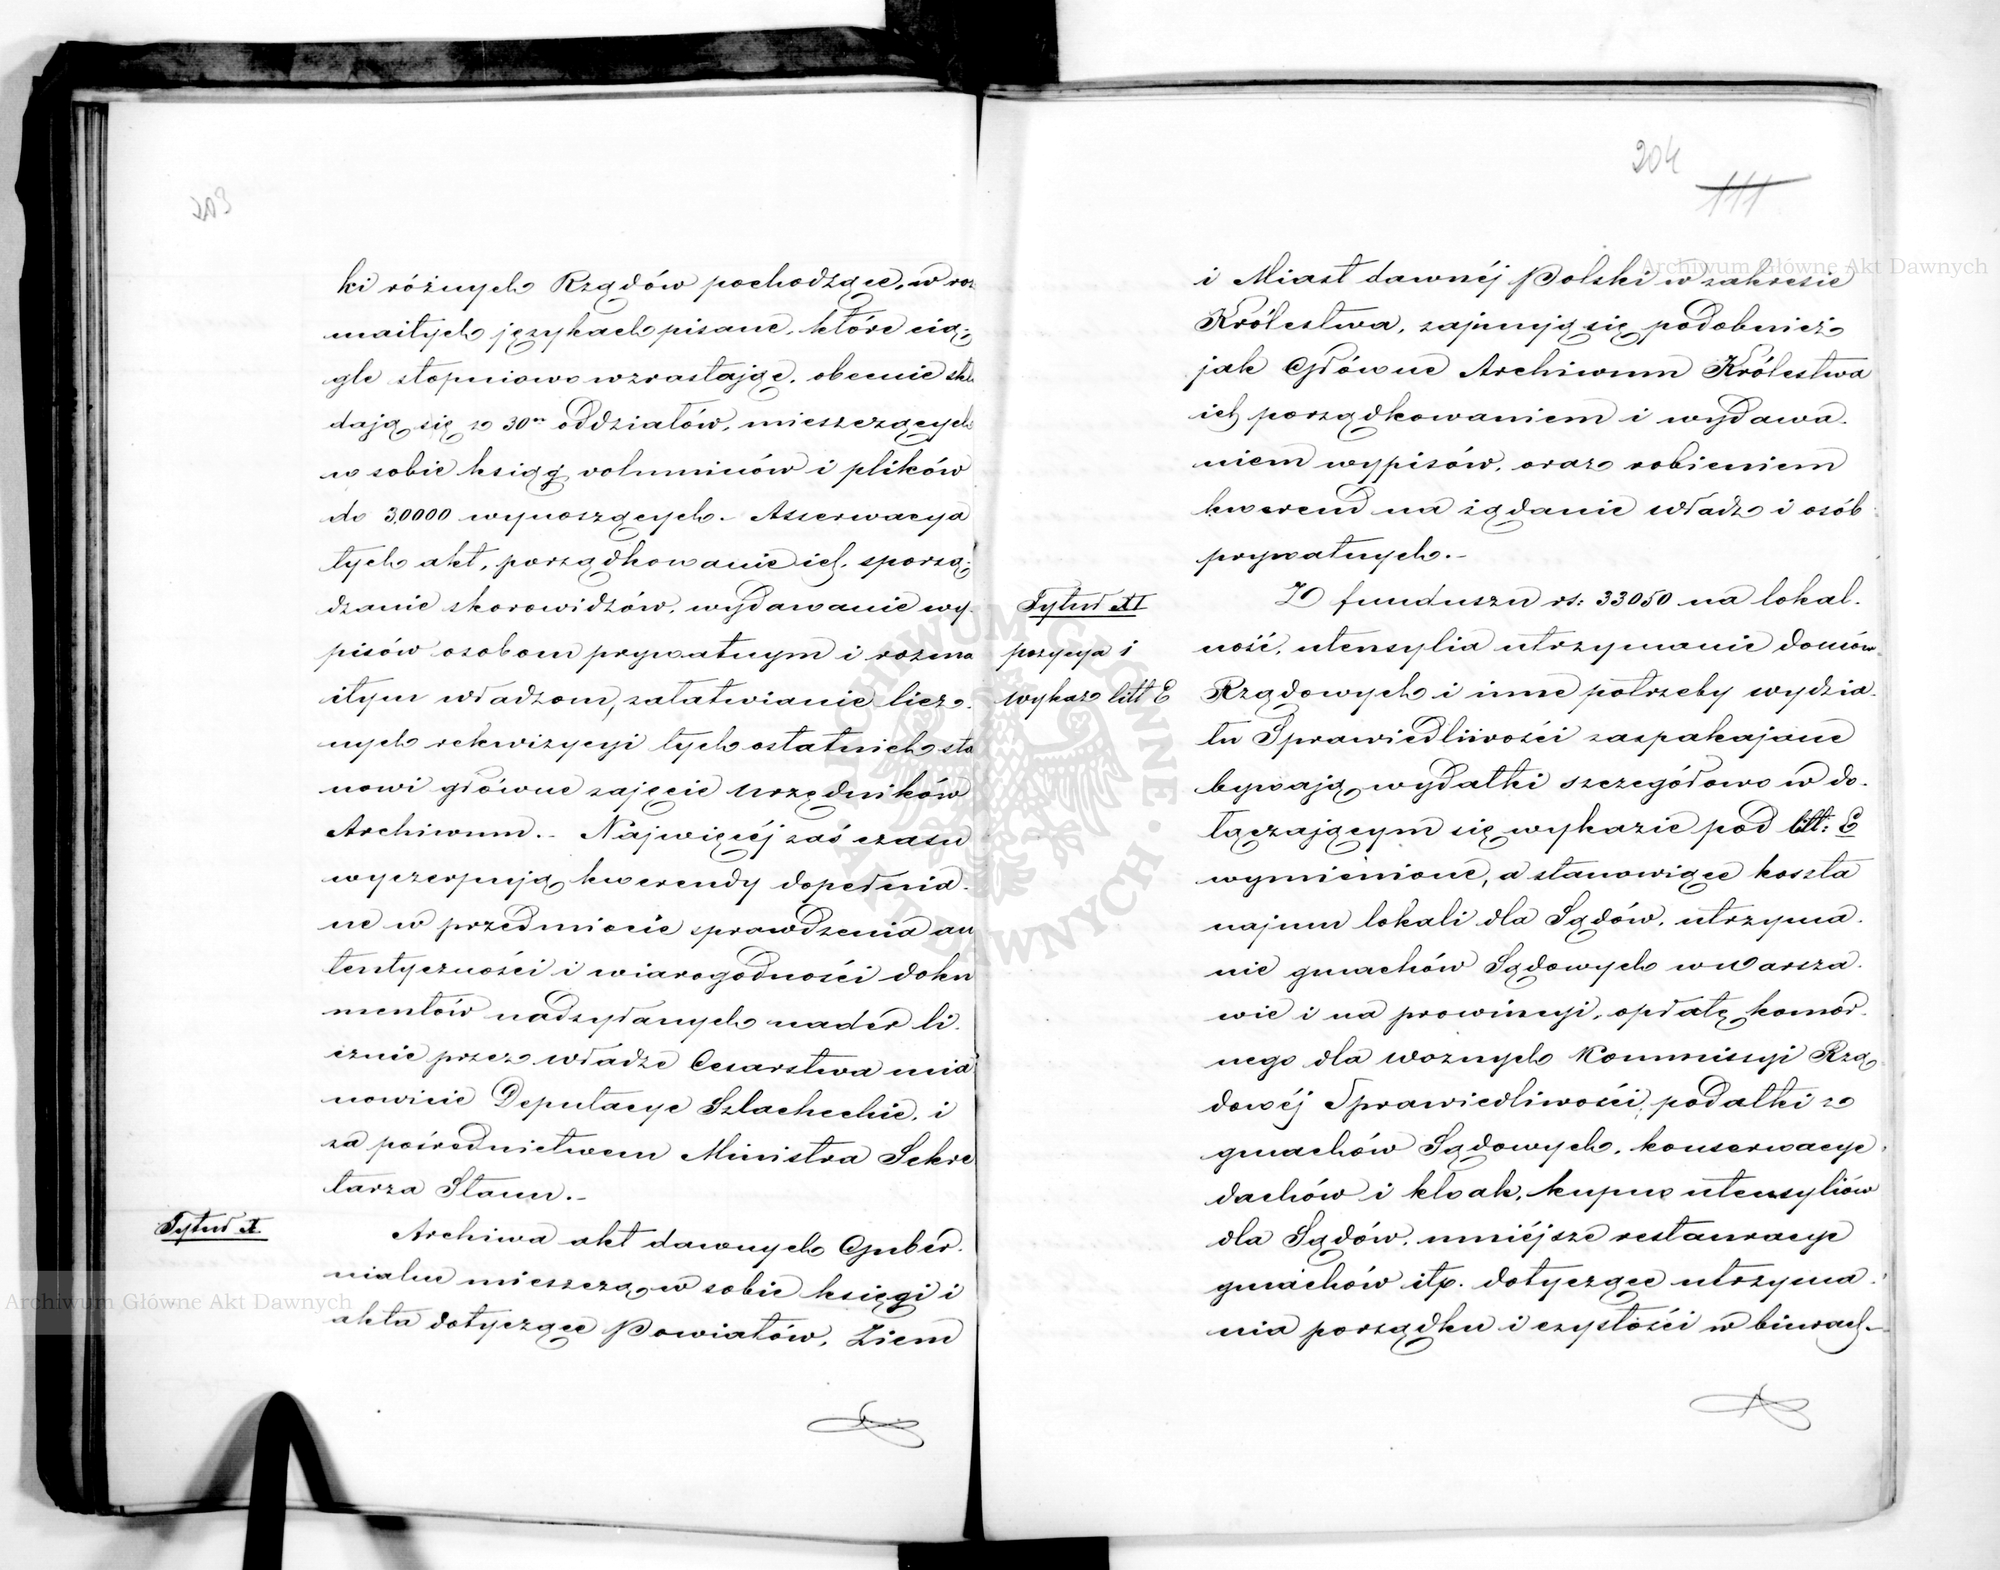 ki różnych Rządów pochodzące, w roz
maitych językach pisane, które cią-
gle stopniowo wzrastając, obecnie skła
dają się z 30u oddziałów, mieszczących
w sobie ksiąg voluminów i plików
do 30000 wynoszących. - Asserwacya
tych akt, porządkowanie ich, sporzą-
dzanie skorowidzów, wydawanie wy-
pisów osobom prywatnym i rozma
itym władzom, załatwianie licz-
nych rekwizycyi tych ostatnich sta
nowi główne zajęcie urzędników
Archiwum. - Najwięcéj zaś czasu
wyczerpują kwerendy dopełnia-
ne w przedmiocie sprawdzenia au
tentyczności i wiarogodności doku
mentów nadsyłanych nader li-
cznie przez władze Cesarstwa mia
nowicie Deputacye Szlacheckie, i
za pośrednictwem Ministra Sekre
tarza Stanu. -
Tytuł X.
Archiwa akt dawnych Guber-
nialne mieszczą w sobie księgi i
akta dotyczące Powiatów, Ziem
204
111
i Miast dawnéj Polski w zakresie
Królestwa, zajmują się podobnież
jak Główne Archiwum Królestwa
ich porządkowaniem i wydawa-
niem wypisów, oraz robieniem
kwerend na żądanie władz i osób
prywatnych. -
Tytuł XI
pozycya 1
wykaz litt E
Z funduszu rs: 33050 na lokal-
ność, utensylia utrzymanie domów
Rządowych i inne potrzeby wydzia-
łu Sprawiedliwości zaspakajane
bywają wydatki szczegółowo w do-
łączającym się wykazie pod litt: E
wymienione, a stanowiące koszta
najmu lokali dla Sądów, utrzyma-
nie gmachów Sądowych w Warsza-
wie i na prowincyi, opłatę komor-
nego dla woznych Kommissyi Rzą-
dowéj Sprawiedliwości, podatki z
gmachów Sądowych, konserwacye
dachów i kloak, kupno utensyliów
dla Sądów, mniéjsze restauracye
gmachów itp. dotyczące utrzyma-
nia porządku i czystości w biurach -
Archiwum Główne Akt Dawnych
Archiwum Główne Akt Dawnych
ARCHIWUM GŁÓWNE AKT DAWNYCH